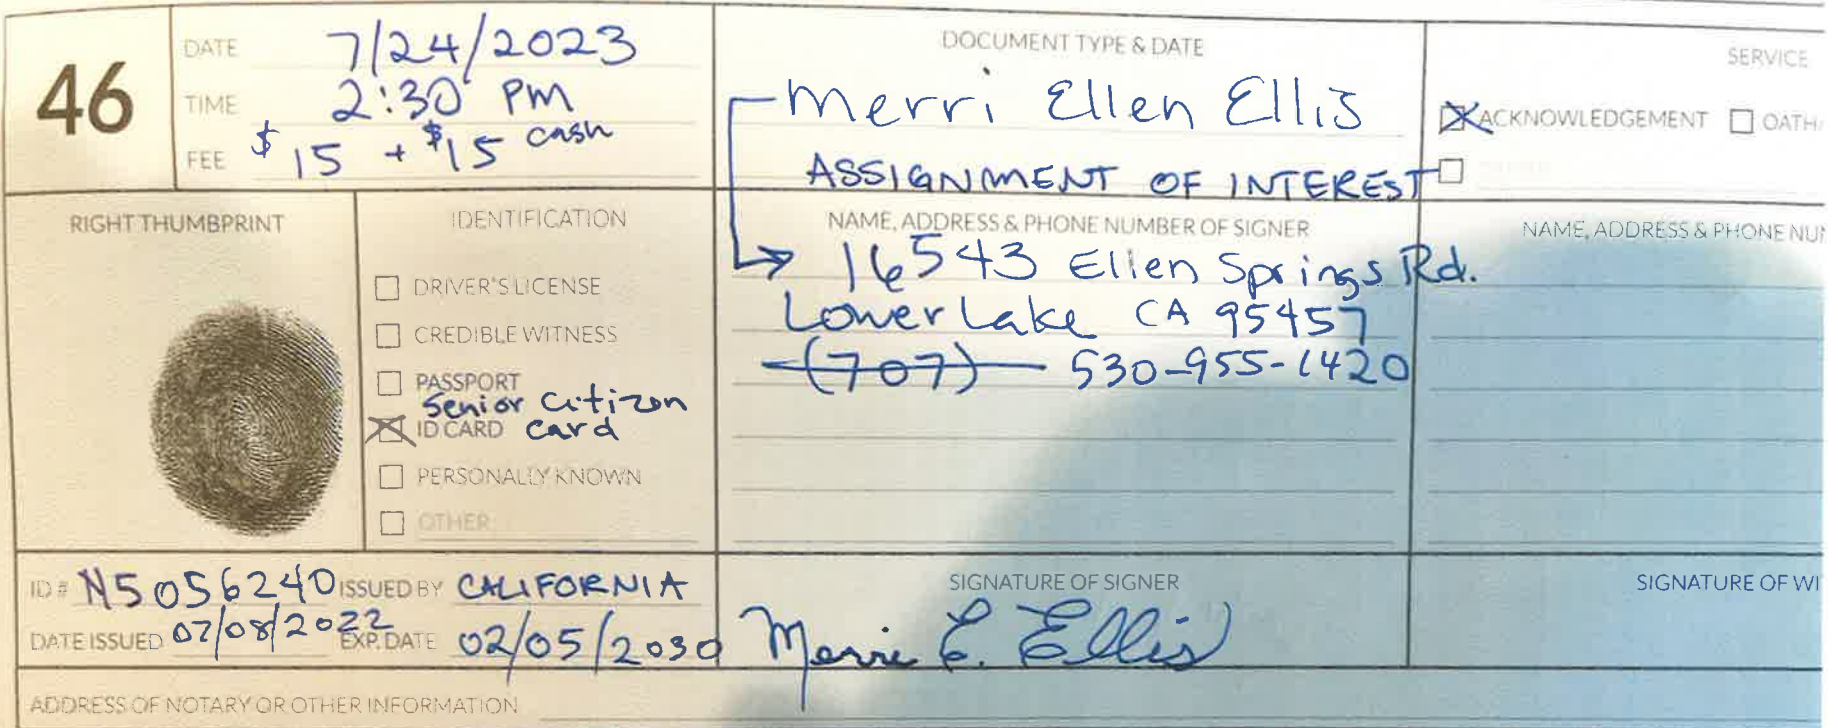 46
DATE 7/24/2023
TIME 2:30 PM
FEE $15 + $15 cash
DOCUMENT TYPE & DATE
Merri Ellen Ellis
ASSIGNMENT OF INTEREST
SERVICE
ACKNOWLEDGEMENT OATH/
RIGHT THUMBPRINT
IDENTIFICATION
DRIVER'S LICENSE
CREDIBLE WITNESS
PASSPORT
Senior Citizen
ID CARD Card
PERSONALLY KNOWN
OTHER
NAME, ADDRESS & PHONE NUMBER OF SIGNER
16543 Ellen Springs Rd.
Lower Lake CA 95457
(707) 530-955-1420
NAME, ADDRESS & PHONE NU
ID # N5056240 ISSUED BY CALIFORNIA
DATE ISSUED 07/08/2022 EXP. DATE 02/05/2030
SIGNATURE OF SIGNER
Merri E. Ellis
SIGNATURE OF WI
ADDRESS OF NOTARY OR OTHER INFORMATION